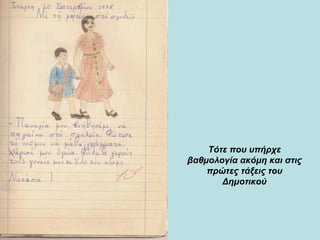 Τετάρτη 20 Σεπτεμβρίου 1928
Με τη μητέρα στό σχολείο
- Παναγία μου, βοήθησέ με, να
πηγαίνω στό σχολείο. Φώτισε
το νοῦ μου νά μάθω γράμματα.
Χάρισέ μου ὑγεία. Φύλαξε γερούς
τούς γονεῖς μου κι ὅλο τόν κόσμο.
Νατάσα
Τότε που υπήρχε
βαθμολογία ακόμη και στις
πρώτες τάξεις του
Δημοτικού